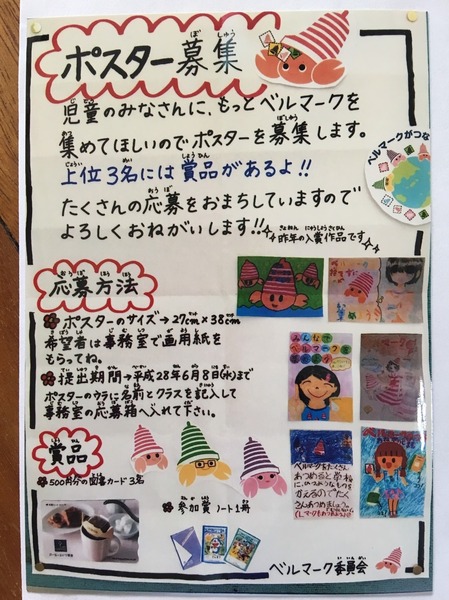 ポスター募集
児童のみなさんに、もっとベルマークを
集めてほしいのでポスターを募集します。
上位3名には賞品があるよ!!
たくさんの応募をおまちしていますので
よろしくおねがいします!!
昨年の入賞作品です
ベルマークがつな
応募方法
ポスターのサイズ→27cm×38cm
希望者は事務室で画用紙を
もらってね。
提出期間→平成28年6月8日(水)まで
ポスターのウラに名前とクラスを記入して
事務室の応募箱へ入れて下さい。
みんなで
ベルマークを
賞品
500円分の図書カード 3名
参加賞 ノート1冊
ベルマークをたくさん
あつめると学校
ベルマーク委員会